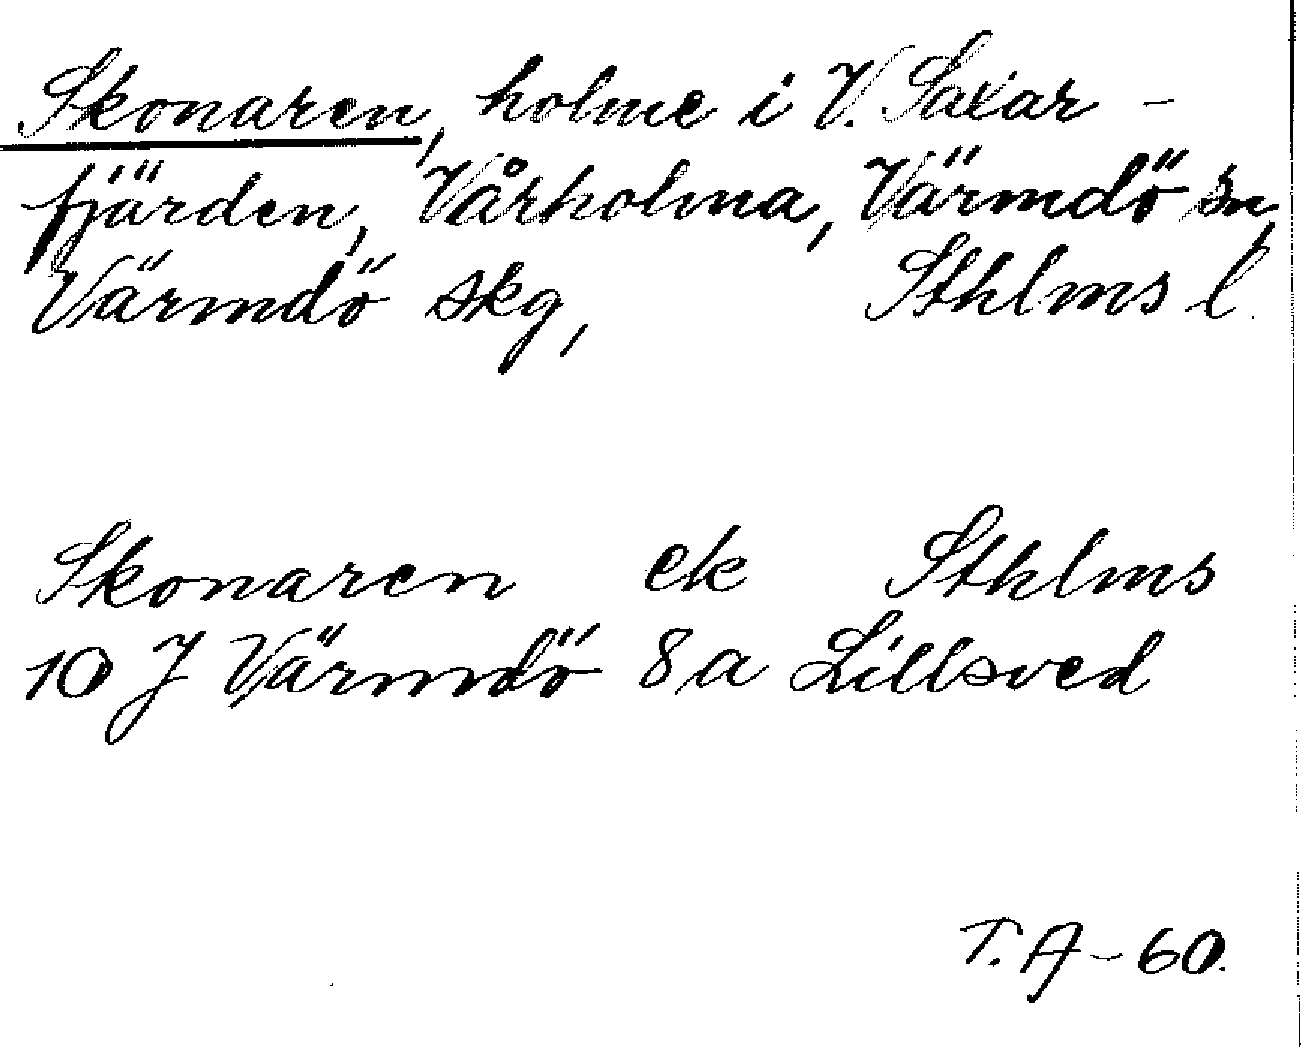 Skonaren, holme i V. Saxar-
fjärden, Vårholma, Värmdö sn,
Värmdö skg, Sthlms l.
Skonaren ek Sthlms
10 J Värmdö 8 a Lillsved
T. A - 60.